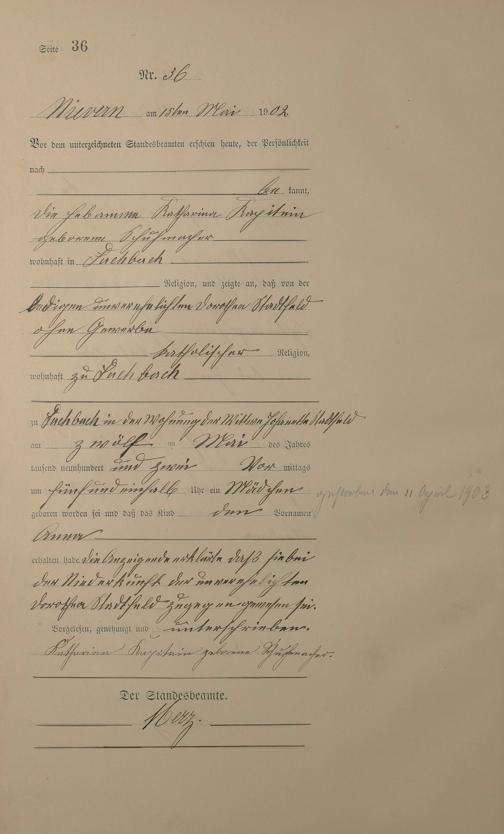 Seite 36
Nr. 36
Nievern am 15ten Mai 1902
Vor dem unterzeichneten Standesbeamten erschien heute, der Persönlichkeit
nach
be kannt,
die Hebamme Katharina Kapitein
geborene Schuhmacher
wohnhaft in Fachbach
Religion, und zeigte an, daß von der
ledigen unverehelichten Dorothea Stadtfeld
ohne Gewerbe
katholischer Religion,
wohnhaft zu Fachbach
zu Fachbach in der Wohnung der Wittwe Stadtfeld
am zwölf ten Mai des Jahres
tausend neunhundert und zwei Vor mittags
um fünf und einhalb Uhr ein Mädchen
geboren worden sei und daß das Kind den Vornamen
gestorben den 11 April 1903
Anna
erhalten habe. die Anzeigende erklärte daß sie bei
der Niederkunft der unverehelichten
Dorothea Stadtfeld zugegen gewesen sei.
Vorgelesen, genehmigt und unterschrieben.
Katharina Kapitein geborene Schuhmacher.
Der Standesbeamte.
Merz.